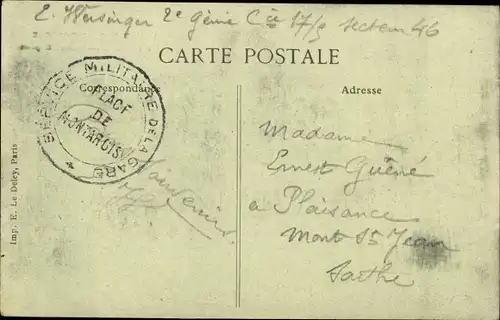 2e Génie Cie 17/3 secteur 46
CARTE POSTALE
Correspondance
Adresse
SERVICE MILITAIRE DE LA GARE
PLACE
DE
MONTARGIS
Souvenirs
Madame
Ernest Guéné
a Plaisance
Mont St Jean
Sarthe
Imp. E. Le Deley, Paris